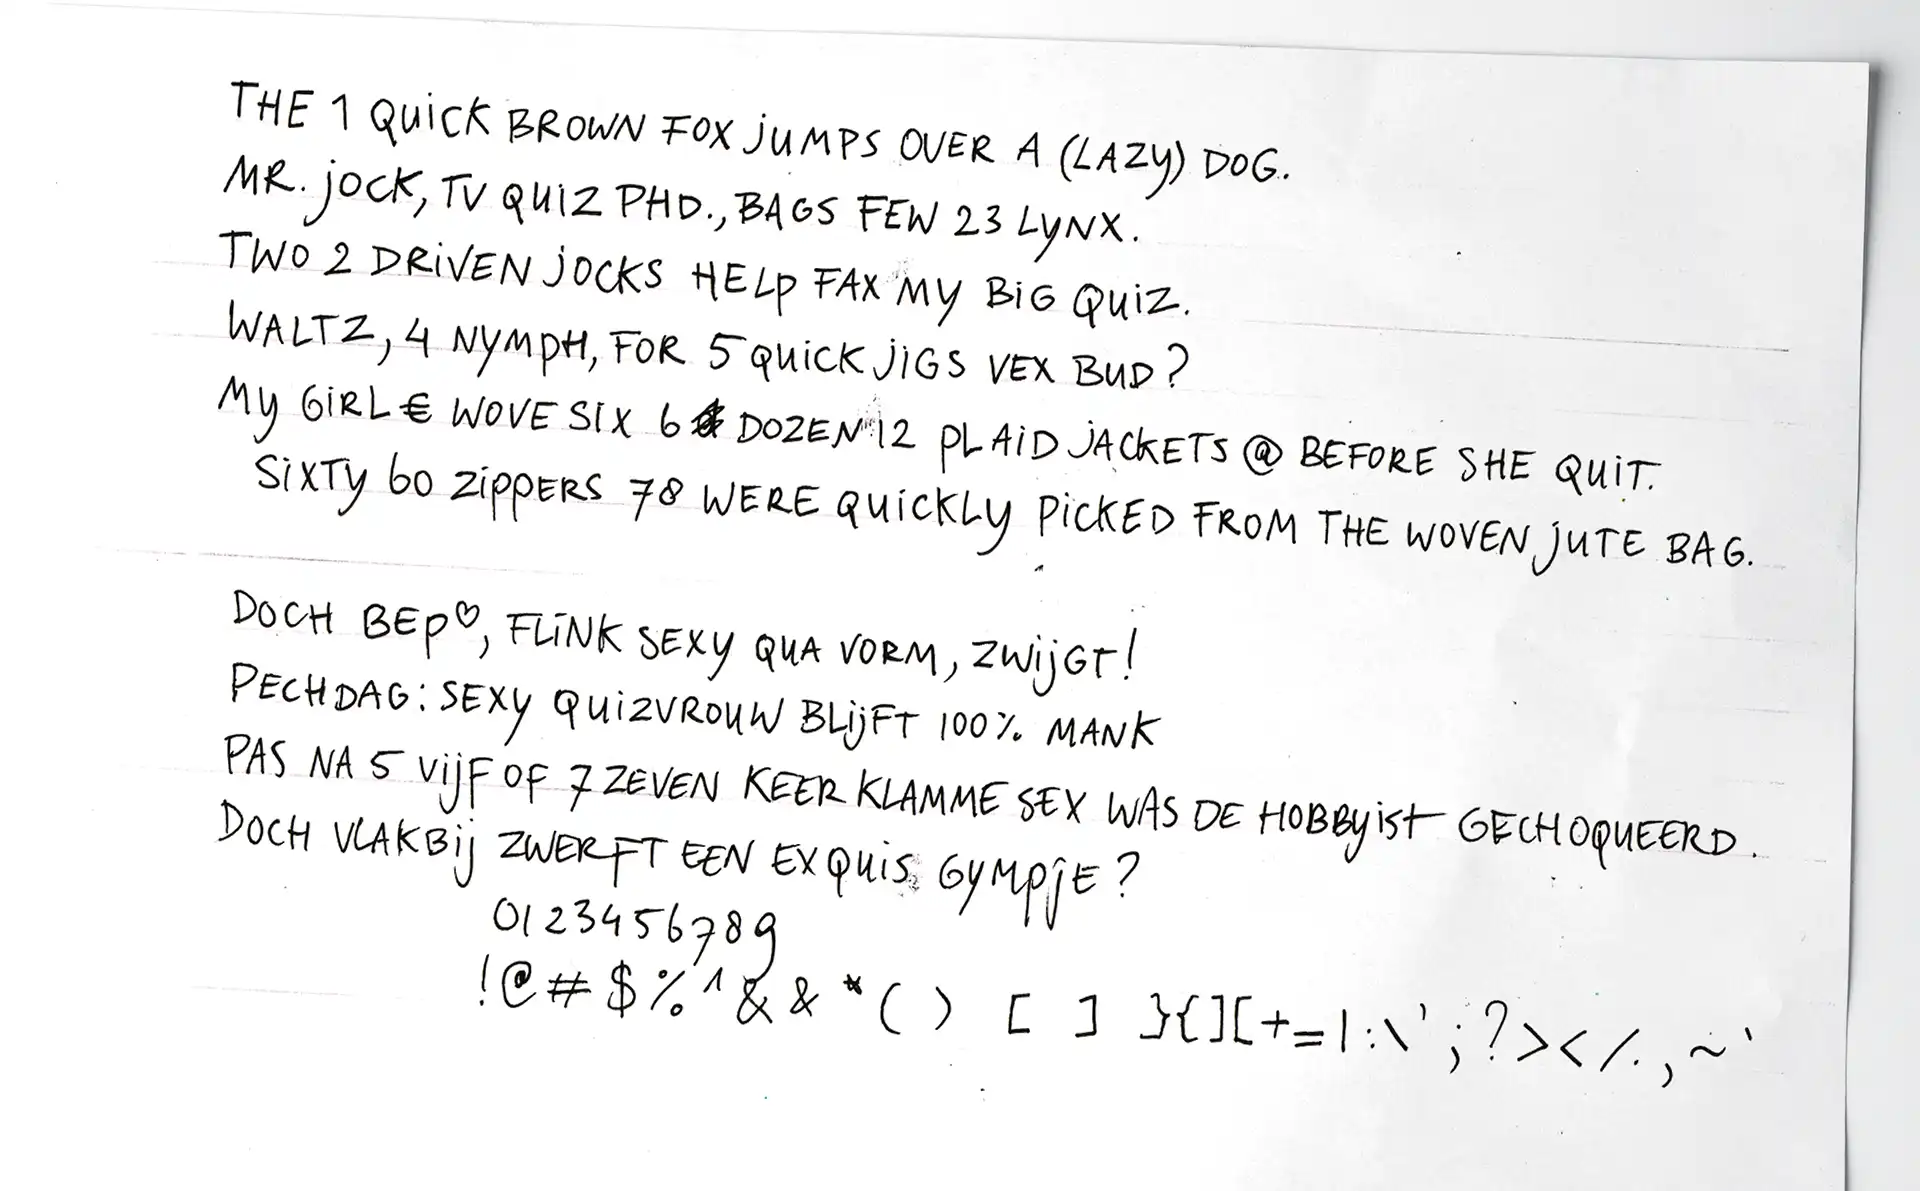 THE 1 QUiCK BROWN FOX jUMPS OVER A (LAZy) DOG.
MR. jOCK, TV QUIZ PHD., BAGS FEW 23 LyNX.
TWO 2 DRiVEN jOCKS HELp FAX My BiG QUiZ.
WALTZ, 4 NyMpH, FOR 5 QUiCK jiGS VEX BUD?
My GiRL € WOVE SiX 6 DOZEN 12 pLAiD jACKETS @ BEFORE SHE QUiT.
SiXTy 60 ZippERS 78 WERE QUiCKLy PiCKED FROM THE WOVEN jUTE BAG.
DOCH BEp♡, FLiNK SEXy QUA VORM, ZWijGT!
PECHDAG: SEXy QUiZVROUW BLijFT 100% MANK
PAS NA 5 VijF OF 7 ZEVEN KEER KLAMME SEX WAS DE HOBByist GECHOQUEERD.
DOCH VLAKBij ZWERFT EEN EXQUiS GyMpjE?
0123456789
!@#$%^&& *( ) [ ] }{][+=|:\';?></.,~`